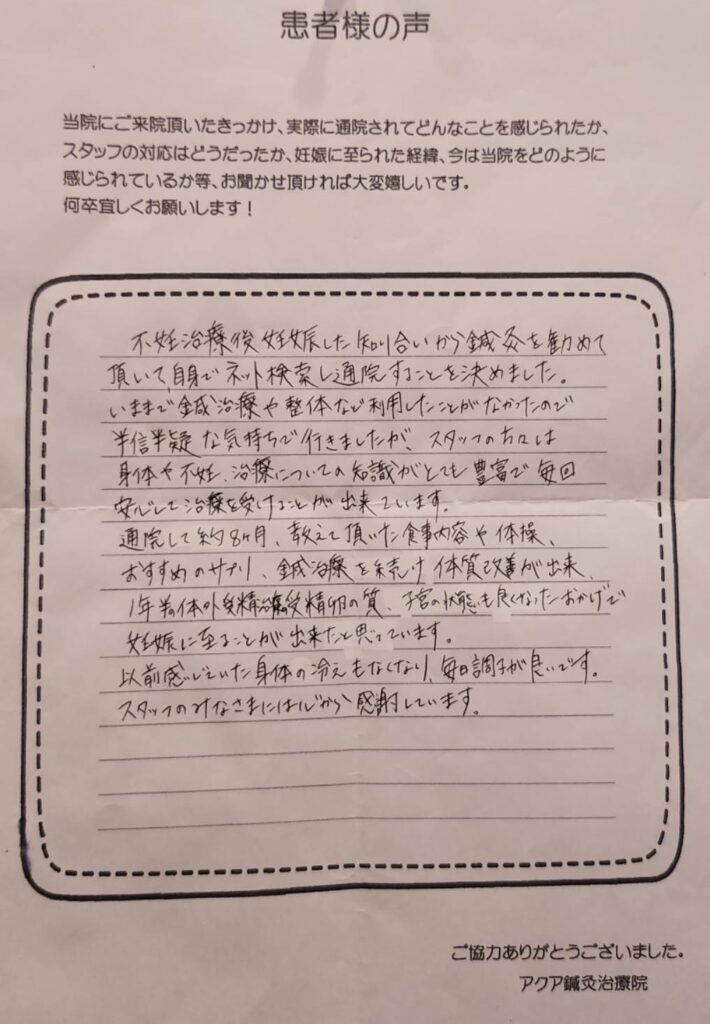 患者様の声
当院にご来院頂いたきっかけ、実際に通院されてどんなことを感じられたか、
スタッフの対応はどうだったか、妊娠に至られた経緯、今は当院をどのように
感じられているか等、お聞かせ頂ければ大変嬉しいです。
何卒宜しくお願いします！
不妊治療後妊娠した知り合いから鍼灸を勧めて
頂いて、自身でネット検索し通院することを決めました。
いままで鍼治療や整体など利用したことがなかったので
半信半疑な気持ちで行きましたが、スタッフの方々は
身体や不妊、治療についての知識がとても豊富で毎回
安心して治療を受けることが出来ています。
通院して約8ヶ月、教えて頂いた食事内容や体操、
おすすめのサプリ、鍼治療を続け体質改善が出来、
1年半の体外受精治療受精卵の質、子宮の状態も良くなったおかげで
妊娠に至ることが出来たと思っています。
以前感じていた身体の冷えもなくなり、毎日調子が良いです。
スタッフのみなさまには心から感謝しています。
ご協力ありがとうございました。
アクア鍼灸治療院